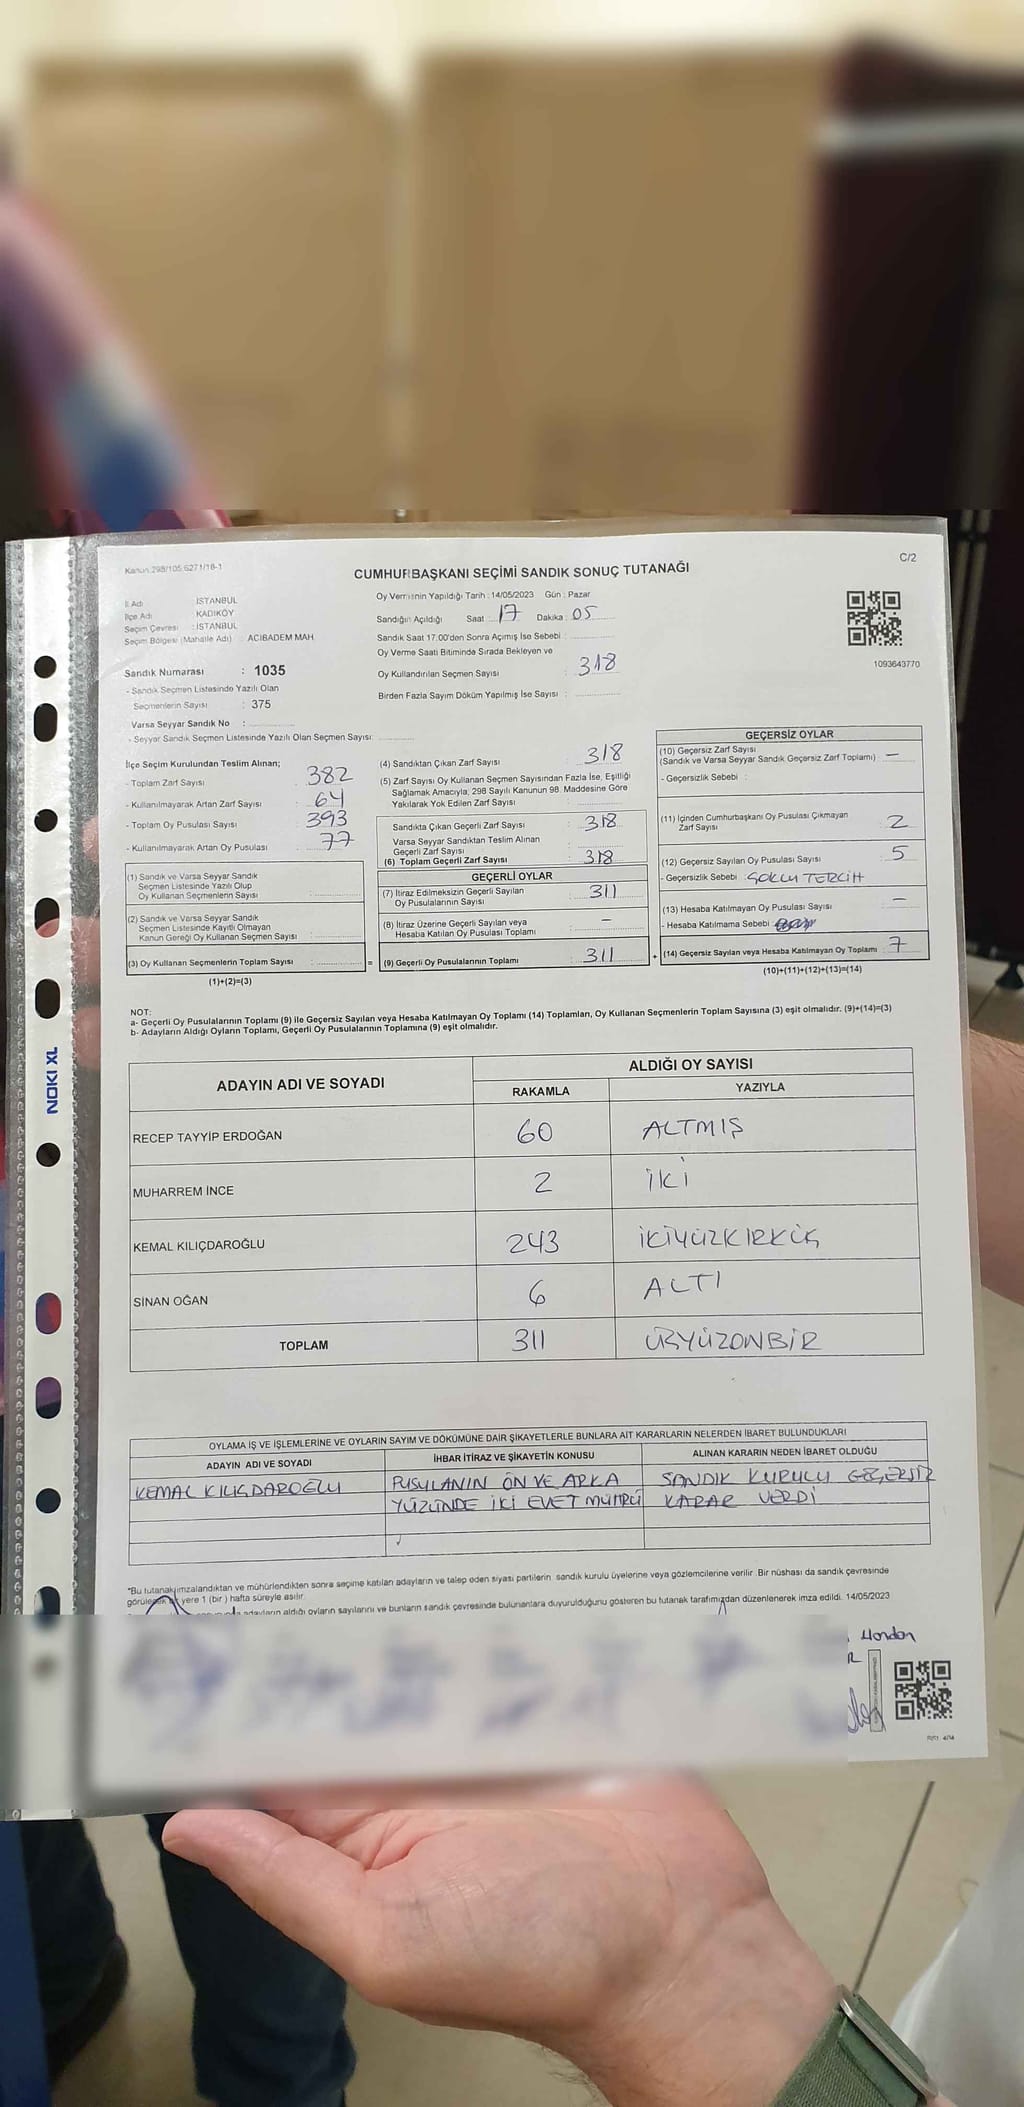 Kanun 298/105 6271/18-1
C/2
CUMHURBAŞKANI SEÇİMİ SANDIK SONUÇ TUTANAĞI
İl Adı : İSTANBUL
İlçe Adı : KADIKÖY
Seçim Çevresi : İSTANBUL
Seçim Bölgesi (Mahalle Adı) : ACIBADEM MAH.
Sandık Numarası : 1035
- Sandık Seçmen Listesinde Yazılı Olan
Seçmenlerin Sayısı : 375
Varsa Seyyar Sandık No :
- Seyyar Sandık Seçmen Listesinde Yazılı Olan Seçmen Sayısı:
Oy Vermenin Yapıldığı Tarih : 14/05/2023 Gün : Pazar
Sandığın Açıldığı Saat 17 Dakika : 05
Sandık Saat 17.00'den Sonra Açılmış İse Sebebi :
Oy Verme Saati Bitiminde Sırada Bekleyen ve
Oy Kullandırılan Seçmen Sayısı : 318
Birden Fazla Sayım Döküm Yapılmış İse Sayısı :
1093643770
İlçe Seçim Kurulundan Teslim Alınan;
- Toplam Zarf Sayısı : 382
- Kullanılmayarak Artan Zarf Sayısı : 64
- Toplam Oy Pusulası Sayısı : 393
- Kullanılmayarak Artan Oy Pusulası : 77
(1) Sandık ve Varsa Seyyar Sandık
Seçmen Listesinde Yazılı Olup
Oy Kullanan Seçmenlerin Sayısı :
(2) Sandık ve Varsa Seyyar Sandık
Seçmen Listesinde Kayıtlı Olmayan
Kanun Gereği Oy Kullanan Seçmen Sayısı :
(3) Oy Kullanan Seçmenlerin Toplam Sayısı : =
(1)+(2)=(3)
(4) Sandıktan Çıkan Zarf Sayısı : 318
(5) Zarf Sayısı Oy Kullanan Seçmen Sayısından Fazla İse, Eşitliği
Sağlamak Amacıyla, 298 Sayılı Kanunun 98. Maddesine Göre
Yakılarak Yok Edilen Zarf Sayısı :
Sandıkta Çıkan Geçerli Zarf Sayısı : 318
Varsa Seyyar Sandıktan Teslim Alınan
Geçerli Zarf Sayısı :
(6) Toplam Geçerli Zarf Sayısı : 318
GEÇERLİ OYLAR
(7) İtiraz Edilmeksizin Geçerli Sayılan
Oy Pusulalarının Sayısı : 311
(8) İtiraz Üzerine Geçerli Sayılan veya
Hesaba Katılan Oy Pusulası Toplamı : —
(9) Geçerli Oy Pusulalarının Toplamı : 311 +
GEÇERSİZ OYLAR
(10) Geçersiz Zarf Sayısı
(Sandık ve Varsa Seyyar Sandık Geçersiz Zarf Toplamı) : —
- Geçersizlik Sebebi :
(11) İçinden Cumhurbaşkanı Oy Pusulası Çıkmayan
Zarf Sayısı : 2
(12) Geçersiz Sayılan Oy Pusulası Sayısı : 5
- Geçersizlik Sebebi : ÇOKLU TERCİH
(13) Hesaba Katılmayan Oy Pusulası Sayısı : —
- Hesaba Katılmama Sebebi
(14) Geçersiz Sayılan veya Hesaba Katılmayan Oy Toplamı : 7
(10)+(11)+(12)+(13)=(14)
NOT:
a- Geçerli Oy Pusulalarının Toplamı (9) ile Geçersiz Sayılan veya Hesaba Katılmayan Oy Toplamı (14) Toplamları, Oy Kullanan Seçmenlerin Toplam Sayısına (3) eşit olmalıdır. (9)+(14)=(3)
b- Adayların Aldığı Oyların Toplamı, Geçerli Oy Pusulalarının Toplamına (9) eşit olmalıdır.
ADAYIN ADI VE SOYADI
ALDIĞI OY SAYISI
RAKAMLA YAZIYLA
RECEP TAYYİP ERDOĞAN 60 ALTMIŞ
MUHARREM İNCE 2 İKİ
KEMAL KILIÇDAROĞLU 243 İKİYÜZKIRKÜÇ
SİNAN OĞAN 6 ALTI
TOPLAM 311 ÜÇYÜZONBİR
OYLAMA İŞ VE İŞLEMLERİNE VE OYLARIN SAYIM VE DÖKÜMÜNE DAİR ŞİKAYETLERLE BUNLARA AİT KARARLARIN NELERDEN İBARET BULUNDUKLARI
ADAYIN ADI VE SOYADI İHBAR İTİRAZ VE ŞİKAYETİN KONUSU ALINAN KARARIN NEDEN İBARET OLDUĞU
KEMAL KILIÇDAROĞLU PUSULANIN ÖN VE ARKA SANDIK KURULU GEÇERSİZ
YÜZÜNDE İKİ EVET MÜHRÜ KARAR VERDİ
*Bu tutanak imzalandıktan ve mühürlendikten sonra seçime katılan adayların ve talep eden siyasi partilerin sandık kurulu üyelerine veya gözlemcilerine verilir. Bir nüshası da sandık çevresinde
yere 1 (bir ) hafta süreyle asılır.
adayların aldığı oyların sayılarını ve bunların sandık çevresinde bulunanlara duyurulduğunu gösteren bu tutanak tarafımızdan düzenlenerek imza edildi. 14/05/2023
NOKI XL